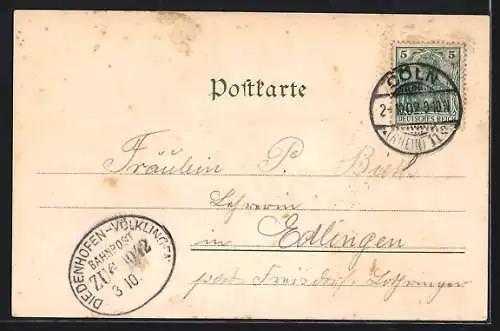 Postkarte
5 5
DEUTSCHES REICH
CÖLN
(RHEIN)
Fräulein P.
Lehrerin
in Edlingen
post Freisdorf Lothringen
DIEDENHOFEN-VÖLKLINGEN
BAHNPOST
ZUG 1942
3 10.